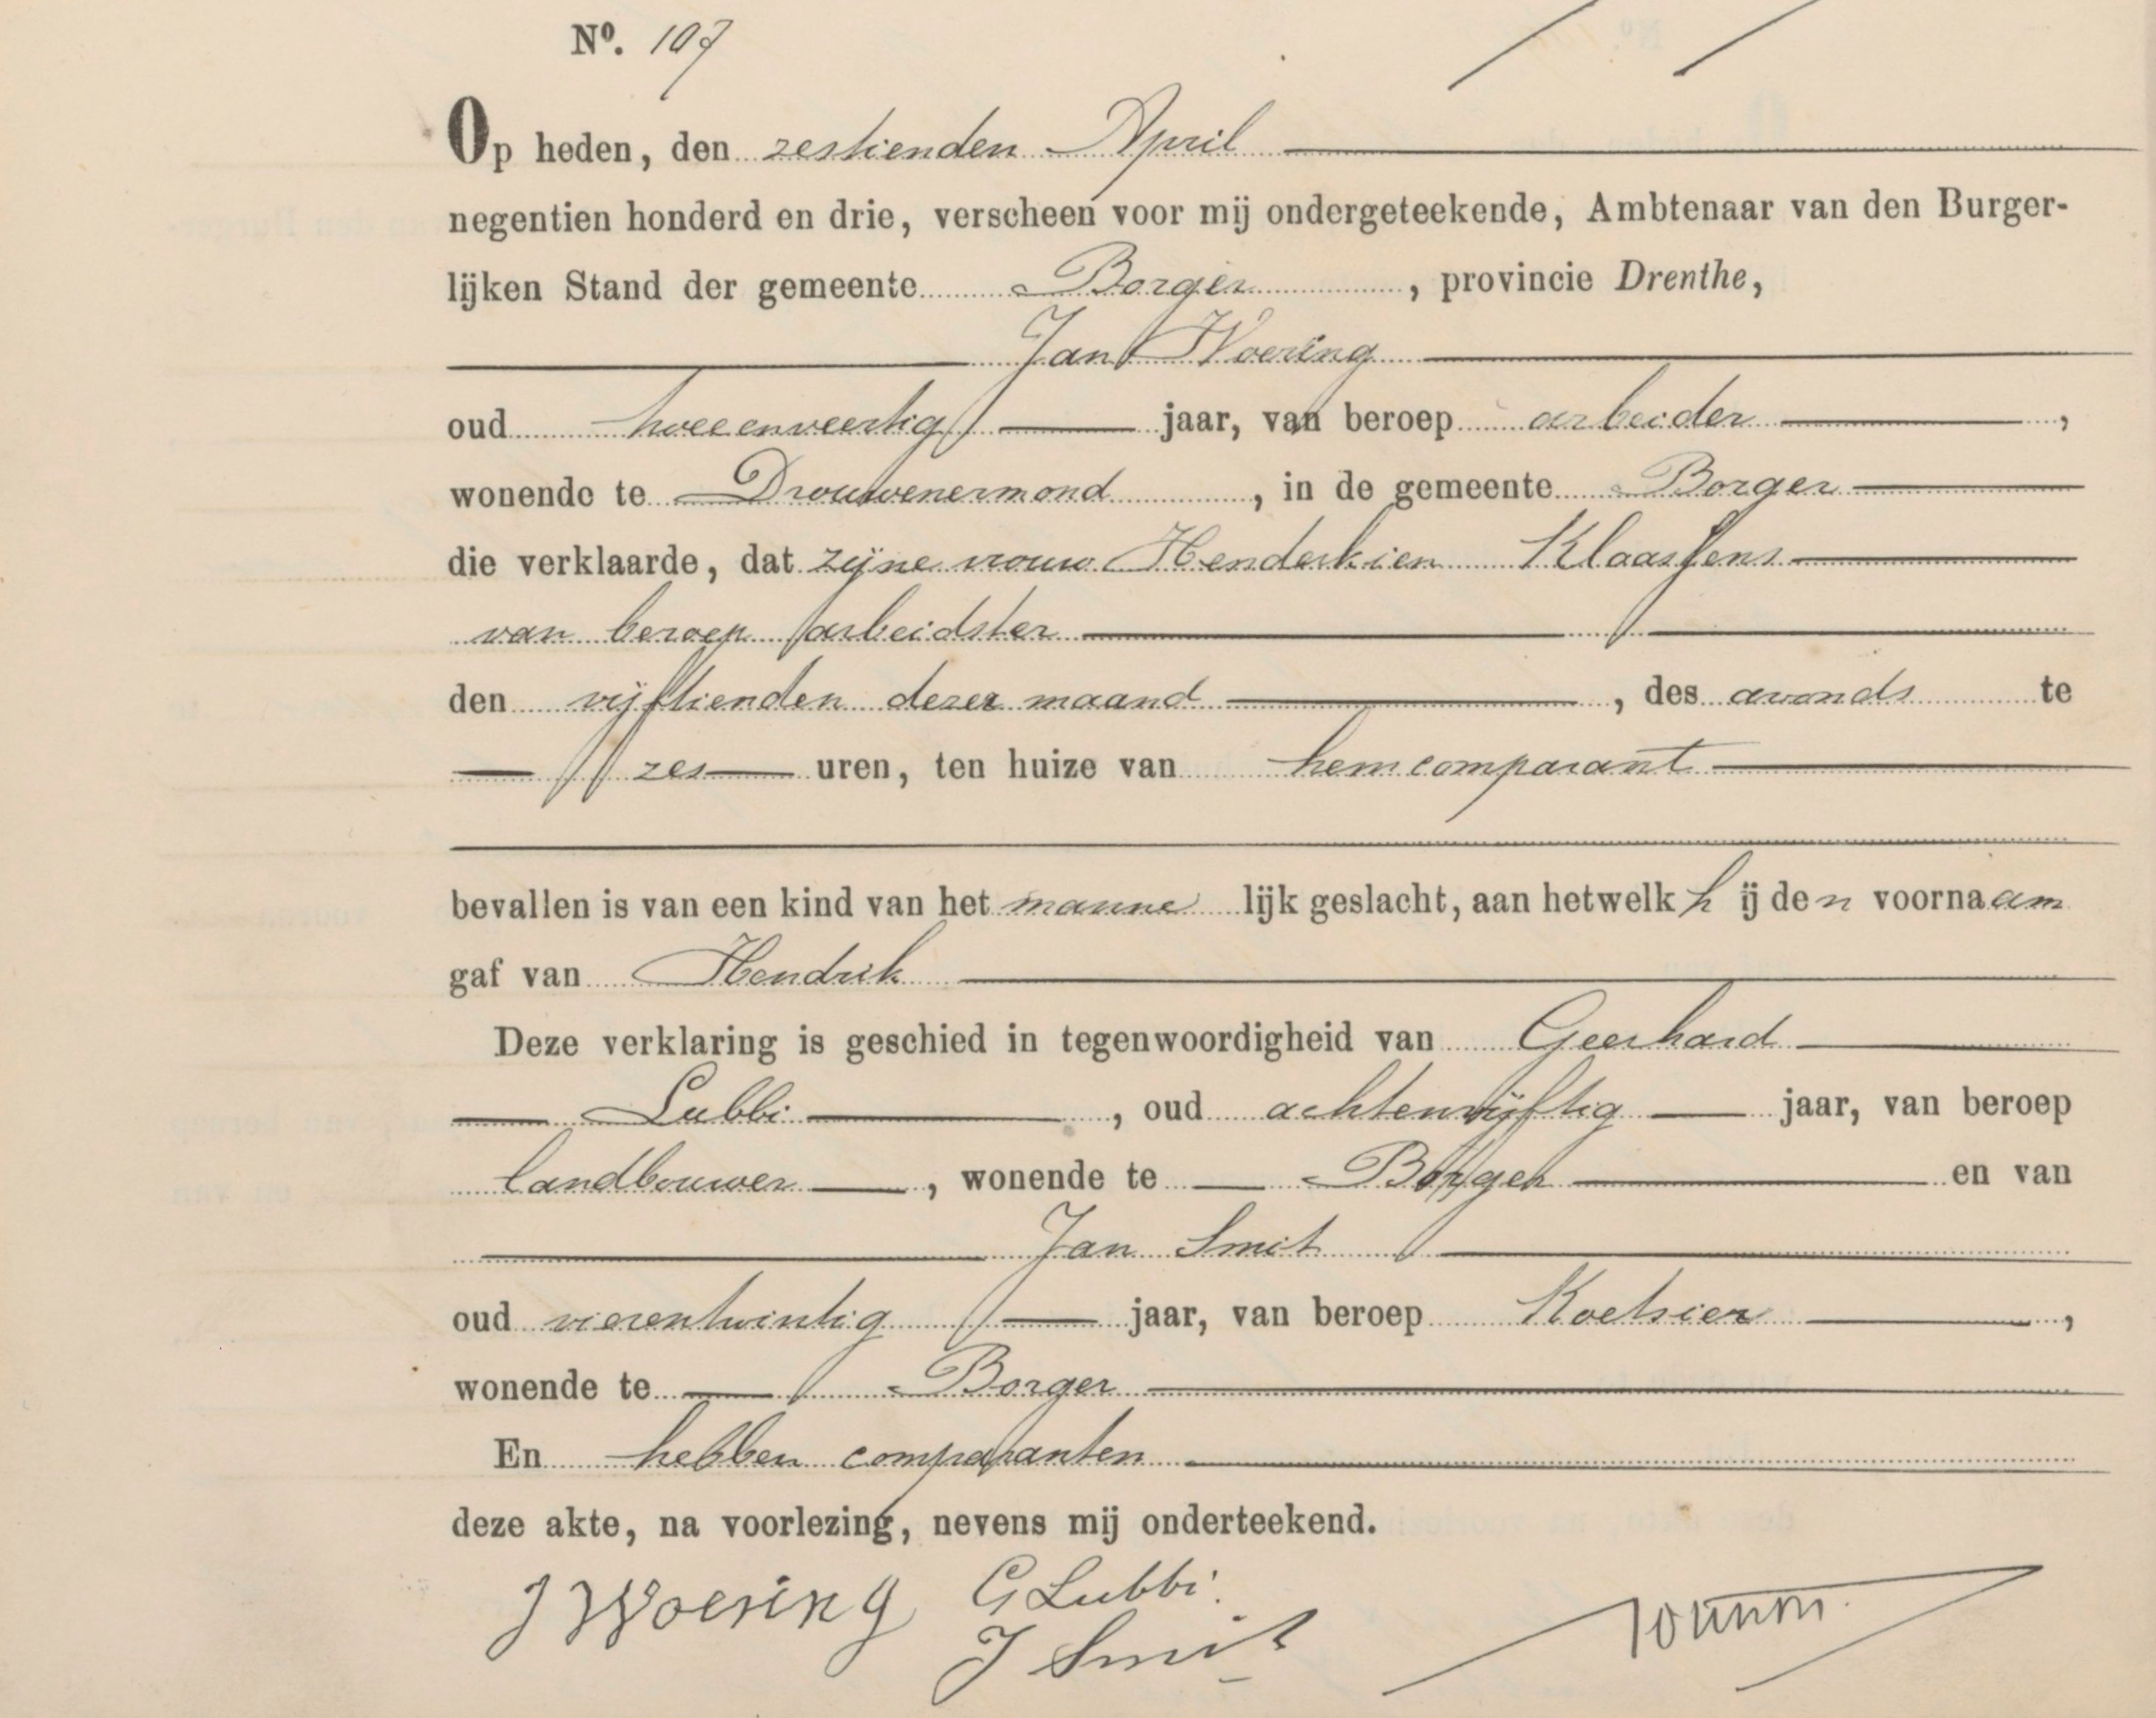 Nº. 107
Op heden, den zestienden April
negentien honderd en drie, verscheen voor mij ondergeteekende, Ambtenaar van den Burger-
lijken Stand der gemeente Borger, provincie Drenthe,
Jan Woering
oud tweeenveertig jaar, van beroep arbeider,
wonende te Drouwenermond, in de gemeente Borger
die verklaarde, dat zijne vrouw Henderkien Klaassens
van beroep arbeidster
den vijftienden dezer maand, des avonds te
zes uren, ten huize van hem comparant
bevallen is van een kind van het mannelijk geslacht, aan hetwelk hij den voornaam
gaf van Hendrik
Deze verklaring is geschied in tegenwoordigheid van Geerhard
Lubbi, oud achtenvijftig jaar, van beroep
landbouwer, wonende te Borger en van
Jan Smit
oud vierentwintig jaar, van beroep Koetsier,
wonende te Borger
En hebben comparanten
deze akte, na voorlezing, nevens mij onderteekend.
J Woering G Lubbi
J Smit